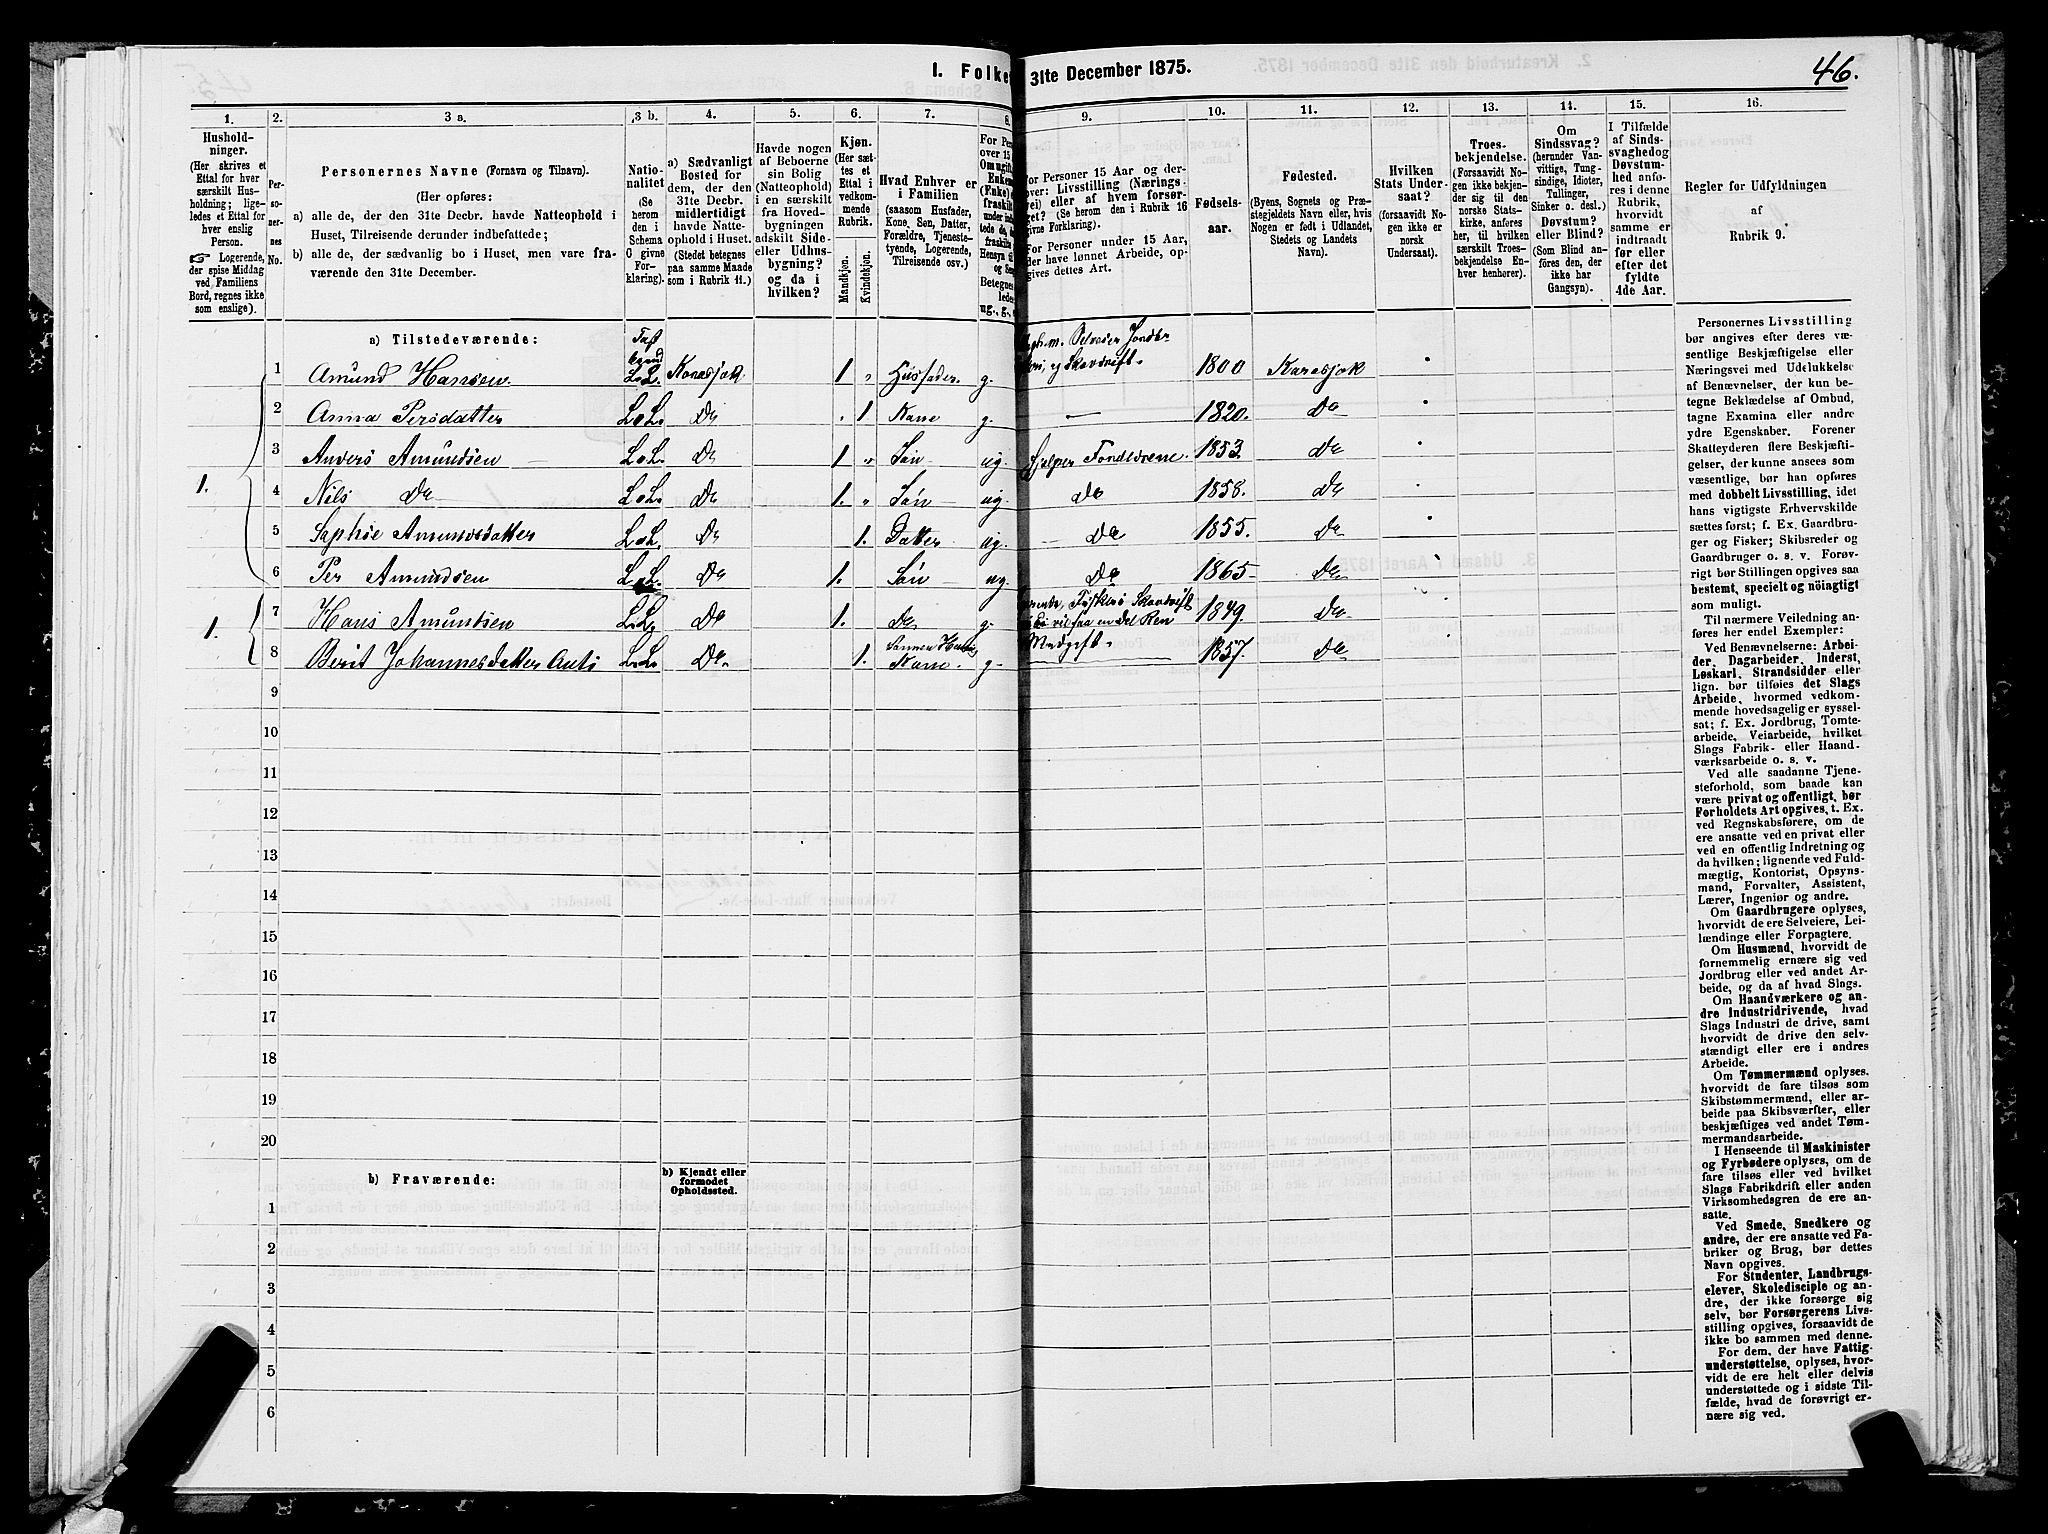 I. Folke 31te December 1875.
46.
1. 2. 3 a. 3 b. 4. 5. 6. 7. 8. 9. 10. 11. 12. 13. 14. 15. 16.
Hushold-
ninger.
(Her skrives et
Ettal for hver
særskilt Hus-
holdning; lige-
ledes et Ettal for
hver enslig
Person.
☞ Logerende,
der spise Middag
ved Familiens
Bord, regnes ikke
som enslige).
Per-
so-
ner-
nes
No.
Personernes Navne (Fornavn og Tilnavn).
(Her opføres:
a) alle de, der den 31te Decbr. havde Natteophold i
Huset, Tilreisende derunder indbefattede;
b) alle de, der sædvanlig bo i Huset, men vare fra-
værende den 31te December.
Natio-
nalitet
(Se
herom
den i
Schema
C givne
For-
klaring).
a) Sædvanligt
Bosted for
dem, der den
31te Decbr.
midlertidigt
havde Natte-
ophold i Huset.
(Stedet betegnes
paa samme Maade
som i Rubrik 11.)
Havde nogen
af Beboerne
sin Bolig
(Natteophold)
i en særskilt
fra Hoved-
bygningen
adskilt Side-
eller Udhus-
bygning?
og da i
hvilken?
Kjøn.
(Her sæt-
tes et
Ettal i
vedkom-
mende
Rubrik.
Mandkjøn.
Kvindekjøn.
Hvad Enhver er
i Familien
(saasom Husfader,
Kone, Søn, Datter,
Forældre, Tjeneste-
tyende, Logerende,
Tilreisende osv.)
For Pe
over 15
Om ugift
Enkem
(Fraskilt
Hensyn til
og Se
Betegnes
lede
ug., g.,
For Personer 15 Aar og der-
over: Livsstilling (Nærings-
vei) eller af hvem forsør-
get? (Se herom den i Rubrik 16
givne Forklaring).
For Personer under 15 Aar,
der have lønnet Arbeide, op-
gives dettes Art.
Fødsels-
aar.
Fødested.
(Byens, Sognets og Præ-
stegjeldets Navn eller, hvis
Nogen er født i Udlandet,
Stedets og Landets
Navn).
Hvilken
Stats Under-
saat?
(forsaavidt No-
gen ikke er
norsk
Undersaat).
Troes-
bekjendelse.
(Forsaavidt No-
gen ikke bekjen-
der sig til den
norske Stats-
kirke, anføres
her, til hvilken
særskilt Troes-
bekjendelse En-
hver henhører).
Om
Sindssvag?
(herunder Van-
vittige, Tung-
sindige, Idioter,
Tullinger,
Sinker o. desl.)
Døvstum?
eller Blind?
(Som Blind an-
føres den, der
ikke har
Gangsyn).
I Tilfælde
af Sinds-
svaghed og
Døvstum-
hed anfø-
res i denne
Rubrik,
hvorvidt
samme er
indtraadt
før eller
efter det
fyldte
4de Aar.
Regler for Udfyldningen
af
Rubrik 9.
a) Tilstedeværende:
1. 1 Amund Hansen Fast boende L.L. Karasjok 1 „ Husfader g. 1800 Karasjok
2 Anna Persdatter L.L. Do 1 Kone g. — 1820. Do
3 Anders Amundsen L.L. Do 1 „ Søn ug. hjelper Forældrene. 1853. Do
4 Nils Do L.L. Do 1. „ Søn ug. Do 1858. Do
5 Sophie Amundsdatter L.L. Do 1. Datter ug. Do 1855. Do
6 Per Amundsen L.L. Do 1. Søn ug. Do 1865 Do
1. 7 Hans Amundsen L.L. Do 1. Do g. Fiskeri Skovdrift 1849. Do
8 Berit Johannesdatter Anti L.L. Do 1. Sønnen Hans Kone. g. 1857. Do
9
10
11
12
13
14
15
16
17
18
19
20
b) Fraværende:
b) Kjendt eller
formodet
Opholdssted.
1
2
3
4
5
6
Personernes Livsstilling
bør angives efter deres væ-
sentlige Beskjæftigelse eller
Næringsvei med Udelukkelse
af Benævnelser, der kun be-
tegne Beklædelse af Ombud,
tagne Examina eller andre
ydre Egenskaber. Forener
Skatteyderen flere Beskjæfti-
gelser, der kunne ansees som
væsentlige, bør han opføres
med dobbelt Livsstilling, idet
hans vigtigste Erhvervskilde
sættes først; f. Ex. Gaardbru-
ger og Fisker; Skibsreder og
Gaardbruger o. s. v. Forøv-
rigt bør Stillingen opgives saa
bestemt, specielt og nöiagtigt
som muligt.
Til nærmere Veiledning an-
føres her endel Exempler:
Ved Benævnelserne: Arbei-
der, Dagarbeider, Inderst,
Løskarl, Strandsidder eller
lign. bør tilføies det Slags
Arbeide, hvormed vedkom-
mende hovedsagelig er syssel-
sat; f. Ex. Jordbrug, Tomte-
arbeide, Veiarbeide, hvilket
Slags Fabrik- eller Haand-
værksarbeide o. s. v.
Ved alle saadanne Tjene-
steforhold, som baade kan
være privat og offentligt, bør
Forholdets Art opgives, t. Ex.
ved Regnskabsførere, om de
ere ansatte ved en privat eller
ved en offentlig Indretning og
da hvilken; lignende ved Fuld-
mægtig, Kontorist, Opsyns-
mand, Forvalter, Assistent,
Lærer, Ingeniør og andre.
Om Gaardbrugere oplyses,
hvorvidt de ere Selveiere, Lei-
lændinge eller Forpagtere.
Om Husmænd, hvorvidt de
fornemmelig ernære sig ved
Jordbrug eller ved andet Ar-
beide, og da af hvad Slags.
Om Haandværkere og an-
dre Industridrivende, hvad
Slags Industri de drive, samt
hvorvidt de drive den selv-
stændigt eller ere i andres
Arbeide.
Om Tømmermænd oplyses,
hvorvidt de fare tilsøs som
Skibstømmermænd, eller ar-
beide paa Skibsværfter, eller
beskjæftiges ved andet Tøm-
mermandsarbeide.
I Henseende til Maskinister
og Fyrbødere oplyses, om de
fare tilsøs eller ved hvilket
Slags Fabrikdrift eller anden
Virksomhedsgren de ere an-
satte.
Ved Smede, Snedkere og
andre, der ere ansatte ved Fa-
briker og Brug, bør dettes
Navn opgives.
For Studenter, Landbrugs-
elever, Skoledisciple og an-
dre, der ikke forsørge sig
selv, bør Forsørgerens Livs-
stilling opgives, forsaavidt de
ikke bo sammen med denne.
For dem, der have Fattig-
understøttelse, oplyses, hvor-
vidt de ere helt eller delvis
understøttede og i sidste Til-
fælde, hvad de forøvrigt er-
nære sig ved.